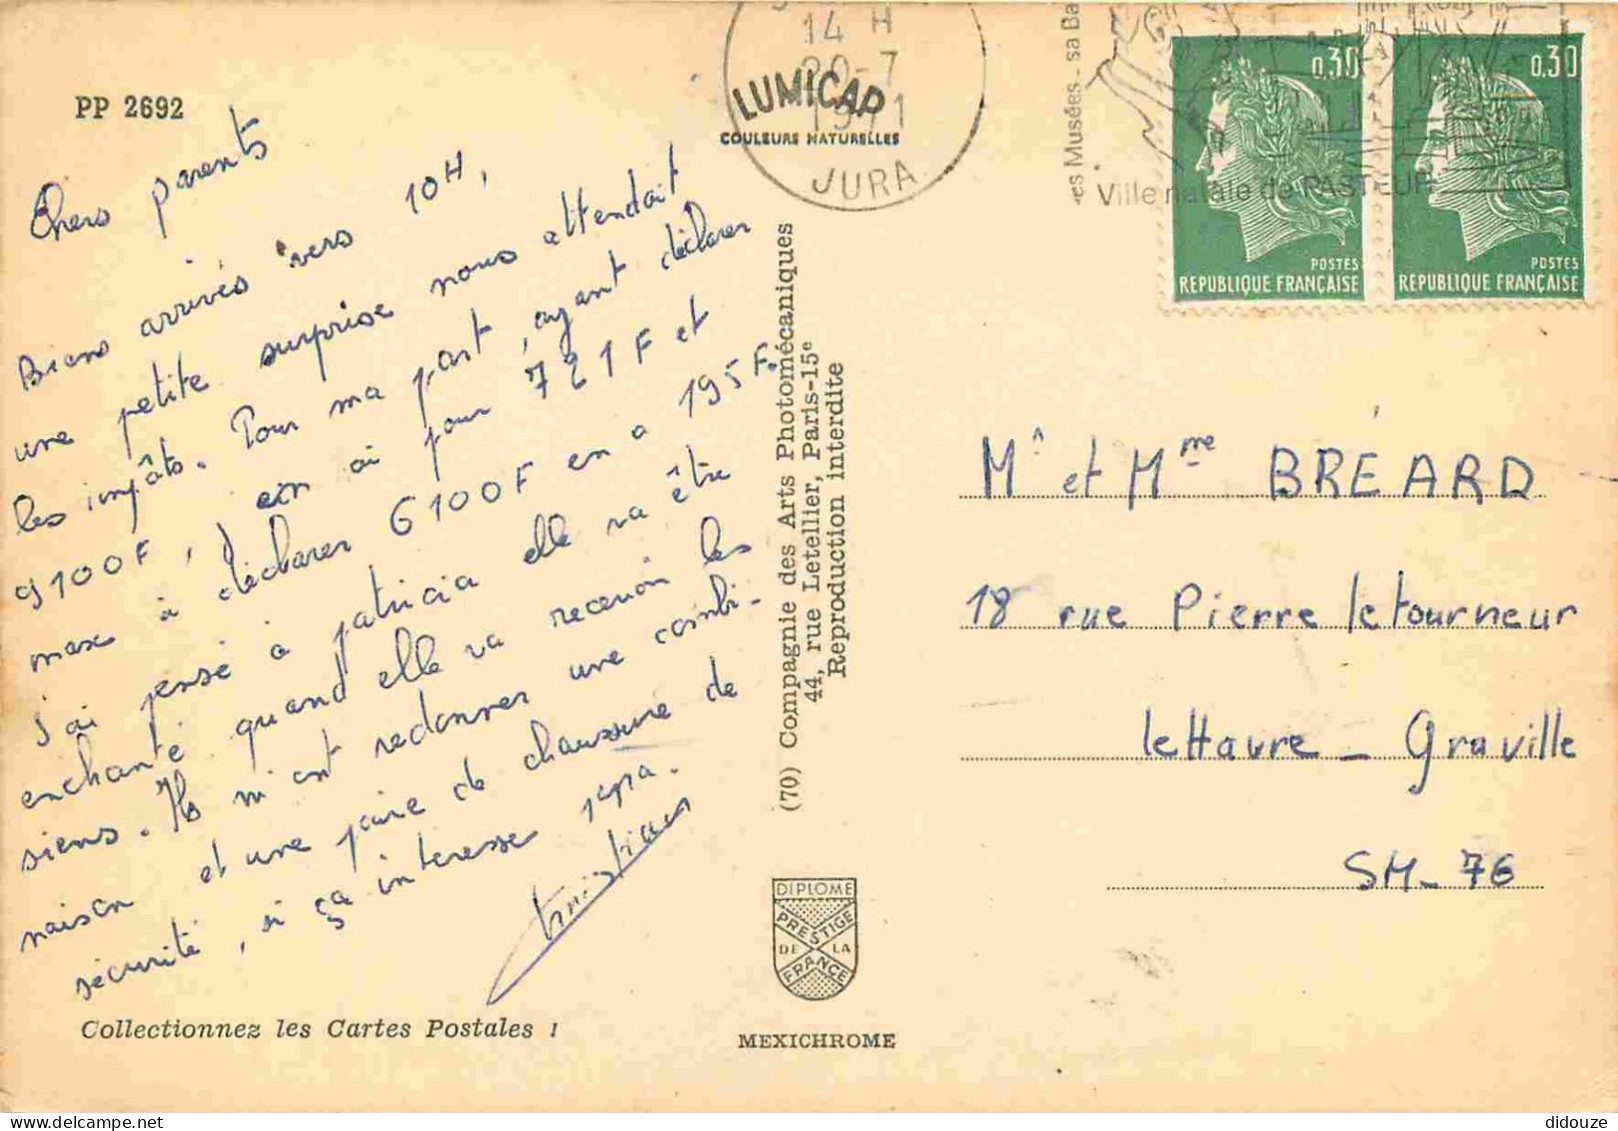 PP 2692
Chers parents
Biens arrivés vers 10H,
une petite surprise nous attendait
les impôts. Pour ma part, ayant déclarer
9100F, j'en ai pour 721F et
max à déclarer 6100F en a 195F.
J'ai pensé à patricia elle va être
enchanté quand elle va recevoir les
siens. Ils m'ont redonner une combi-
naison et une paire de chaussure de
sécurité, si ça intéresse papa.
Christian
Collectionnez les Cartes Postales !
14 H
20-7
1971
JURA
LUMICAP
COULEURS NATURELLES
(70) Compagnie des Arts Photomécaniques
44, rue Letellier, Paris-15e
Reproduction interdite
DIPLOME
PRESTIGE
DE LA
FRANCE
MEXICHROME
Musées - sa Ba
Ville natale de PASTEUR
0,30
POSTES
REPUBLIQUE FRANÇAISE
0,30
POSTES
REPUBLIQUE FRANÇAISE
Mr et Mme BRÉARD
18 rue Pierre letourneur
le Havre - Graville
SM- 76
delcampe.net
didouze